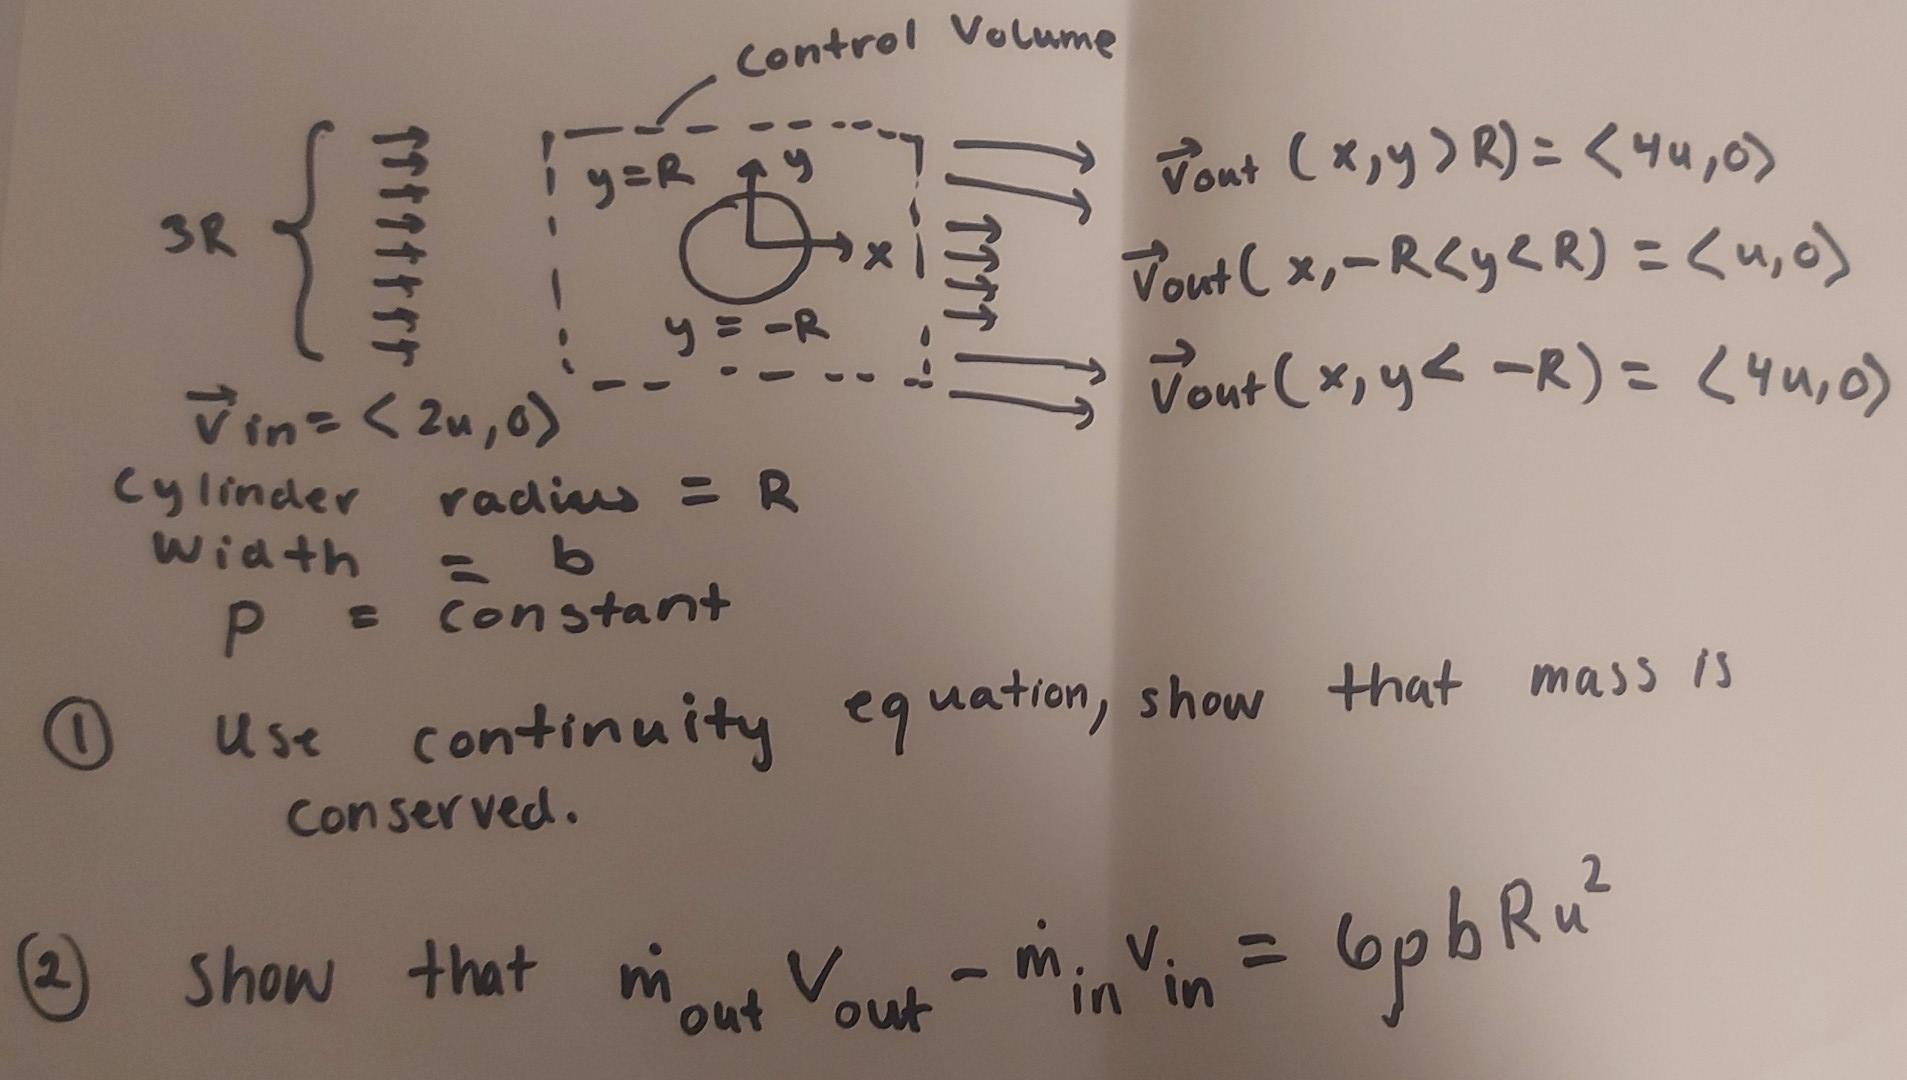 Control Volume
3R
y=R
y
x
y = -R
v⃗out (x,y>R)= <4u,0>
v⃗out(x,-R<y<R) = <u,0>
v⃗out(x,y< -R)= <4u,0>
v⃗in=<2u,0>
Cylinder radius = R
Width = b
ρ = constant
① Use continuity equation, show that mass is
conserved.
② Show that ṁout Vout - ṁin Vin = 6ρbRu²